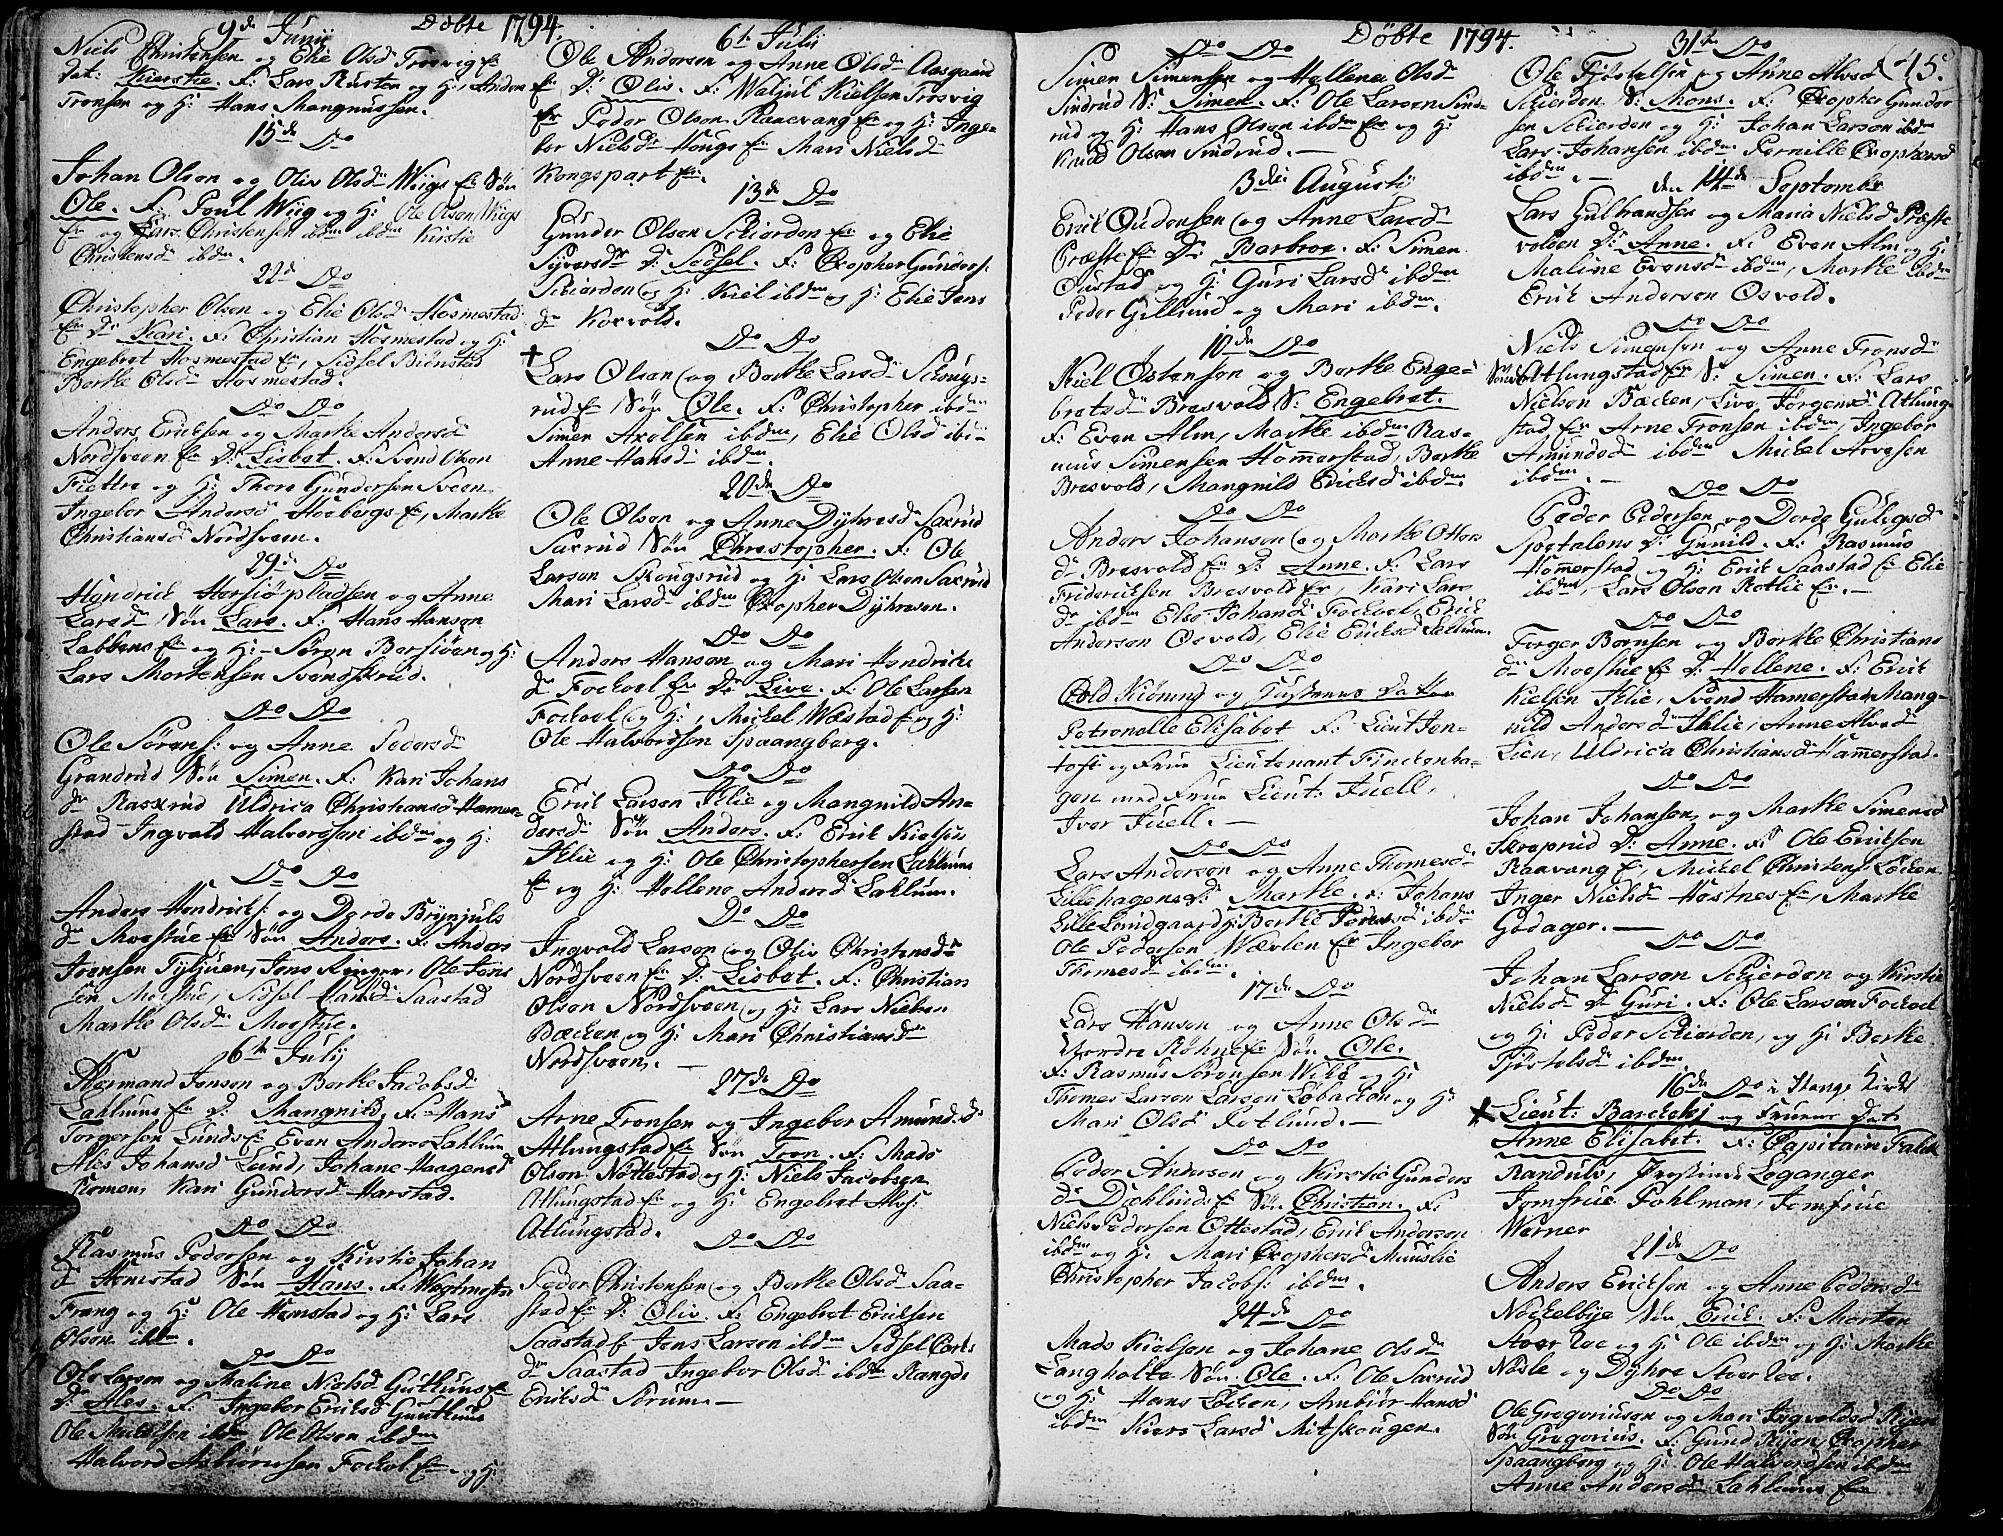 Döbte 1794.
9de Junii
Niels Christensen og Elie Olsd Trosvig E:
dat: Kierstie. F: Lars Rusten og H: Anders
Tronsen og H: Hans Mangnussen.
15de Do
Johan Olsen og Oliv Olsd Wiigs E: Sön
Ole. F: Poul Wiig og H: Ole Olsen Wiigs
E: og Lars Christensen ibdm ibdm Kirstie
Christensd ibdm.
22d Do
Christopher Olsen og Elie Olsd Hosmestad
E: D: Kari. F: Christian Hosmestad og H:
Engebret Hosmestad E:, Sidsel Biönstad
Berthe Olsd Hosmestad.
Do Do
Anders Ericksen og Marthe Andersd
Nordsveen E: D: Lisbet. F: Svend Olsen
Flettre og H: Thore Gundersen Sveen
Ingebor Andersd Hoebergs E:, Marthe
Christiansd Nordsveen.
29d Do
Hendrich Horsiöpladsen og Anne
Larsd Sön Lars. F: Hans Hansen
Labbens E: og H: Sören Borsiöen og H:
Lars Mortensen Svendskrud.
Do Do
Ole Sörens: og Anne Pedersd
Grandrud Sön Simen. F: Kari Johans
d Raskrud Uldrica Christiansd Hamer-
stad Ingvald Halvorsen ibdm og H:
Do Do
Anders Hendricks: og Dorde Brynjuls
d Moestue E: Sön Anders. F: Anders
Jensen Tyljuen, Jens Ringer, Ole Jens
sen Moestue, Sidsel Larsd Saastad
Marthe Olsd Moestue.
6te Julij
Hermand Jensen og Berthe Jacobsd
Lahlums E: D: Mangnild. F: Hans
Torgersen Lunds E: Even Anders: Lahlum
Ales Johansd Lund, Johane Haagensd
Romen, Kari Gundersd Harstad.
Do Do
Rasmus Pedersen og Kirstie Johan
d Hemstad Sön Hans. F: Wagtmester
Frang og H: Ole Hemstad og H: Lars
Olsen ibdm.
Do Do
Ole Larsen og Maline Nielsd Gutlums E:
D: Ales. F: Ingebor Ericksd Gutlums
Ole Mickelsen ibdm Ole Olsen ibdm
Halvord Asbiörnsen Fockol E: og H:
6te Julii
Ole Andersen og Anne Olsd Aasgaard
E: D: Oliv. F: Watjul Kielsen Trosvig
E: Peder Olsen Ranevang E: og H: Inge-
bor Nielsd Hougs E: Mari Nielsd
Kongspart E:.
13de Do
Gunder Olsen Schierden E: og Elie
Syversd D: Sedsel. F: Chropher Gunders:
Schierden og H: Kiel ibdm og H: Elie Jens
d Korvold.
Do Do
Lars Olsen og Berthe Larsd Schougs-
rud E: Sön Ole. F: Christopher ibdm
Simen Axelsen ibdm, Elie Olsd ibd
Anne Hansd ibdm.
20de Do
Ole Olsen og Anne Dyhresd Saxrud
Saxrud Sön Christopher. F: Ole
Larsen Skougsrud og H: Lars Olsen Saxrud
Mari Larsd ibdm Chropher Dyhresen.
Do Do
Anders Hansen og Mari Hendrichs
d Fockoel E: D: Live. F: Ole Larsen
Fockoel og H:, Mickel Wæstad E: og H:
Ole Halvordsen Spaangberg.
Do Do
Erich Larsen Jhlie og Mangnild An-
dersd Sön Anders. F: Erich Kielsen
Jhlie og H: Ole Christophersen Lahlums
E: og H: Hellene Andersd Lahlum.
Do Do
Ingvold Larsen og Oliv Christensd
Nordsveen E: D: Lisbet. F: Christian
Olsen Nordsveen og H: Lars Nielsen
Bæcken og H: Mari Christiansd
Nordsveen.
27de Do
Arne Tronsen og Ingebor Amundsd
Atlungstad E: Sön Tron. F: Mads
Olsen Nöttestad og H: Niels Jacobsen
Atlungstad E: og H: Engebret Alfs:
Atlungstad.
Do Do
Peder Christensen og Berthe Olsd Saa-
stad E: D: Oliv. F: Engebret Ericksen
Saastad E: Jens Larsen ibdm Sidsel Carls
d Saastad Ingebor Olsd ibdm Rangdi
Ericksd Sörum.
Döbte 1794.
Do Do
Simen Simensen og Hellene Olsd
Sindrud S: Simen. F: Ole Larsen Sind-
rud og H: Hans Olsen ibdm E: og H:
Knud Olsen Sindrud.
3die Augusti
Erick Gudensen og Anne Larsd
Præste E: D: Barbroe. F: Simen
Oustad og H: Guri Larsd ibdm
Peder Gillund og Mari ibdm.
10de Do
Kiel Östensen og Berthe Enge-
bretsd Bresvold S: Engebret.
F: Even Alm, Marthe ibdm Ras-
mus Simensen Homerstad, Berthe
Bresvold, Mangnild Ericksd ibdm.
Do Do
Anders Johansen og Marthe Ottos
d Bresvold E: D: Anne. F: Lars
Friderichsen Bresvold E:, Kari Lars
d ibdm Else Johansd Fockoel, Erick
Andersen Osvold, Elie Ericksd Lellum.
Do Do
Petronelle Elisabet F: Lieut Jen-
toft og Frue Lieutenant Finckenha-
gen med Frue Lieut: Juell,
Iver Juell.
Do Do
Lars Andersen og Anne Thomesd
Lillehagens D: Marthe. F: Johans
Lille Lundgaard H: Berthe Pedersd ibdm
Ole Pedersen Wævlen E: Ingebor
Thomesd ibdm.
17de Do
Lars Hansen og Anne Olsd
Nordre Röhne E: Sön Ole.
F: Rasmus Sörensen Wihl og H:
Thomes Larsen Larsen Löbacken og H:
Mari Olsd Rotlund.
Do Do
Peder Andersen og Kirstie Gunders
d Dæhlinds E: Sön Christian. F:
Niels Pedersen Ottestad, Erich Andersen
ibdm og H: Mari Chrophersd Munslie
Christopher Jacobs: ibdm.
24de Do
Mads Kielsen og Johane Olsd
Langholte Sön Ole. F: Ole Saxrud
og H: Hans Löcken, Anbiör Hansd
ibdm Kiers Larsd Mitskougen.
31te Do
45.
Ole Tjöstelsen og Anne Alvsd
Schierden S: Mons. F: Chropher Gunder
sen Schierden og H: Johan Larsen ibdm
Lars Johansen ibdm Pernille Chrophersd
ibdm.
den 14de Septembr
Lars Gulbrandsen og Maria Nielsd Præste
volden D: Anne. F: Even Alm og H:
Maline Evensd ibdm, Marthe ibdm
Erick Andersen Osvold.
Do Do
Niels Simensen og Anne Tronsd
Atlungstad E: S: Simen. F: Lars
Nielsen Bæcken, Live Jörgensd Atlung-
stad E: Arne Tronsen ibdm, Ingebor
Amundsd ibdm Mickel Arvesen
ibdm.
Do Do
Peder Pedersen og Dorde Gulegsd
Spetalens D: Gunild. F: Rasmus
Homerstad og H: Erick Saastad E: Elie
ibdm, Lars Olsen Rotlie E:.
Do Do
Torger Börnsen og Berthe Christians
d Moestue E: D: Hellene. F: Erick
Kielsen Jhlie, Svend Hamerstad, Mang-
nild Andersd Jhlie, Anne Alvsd
Lien, Uldrica Christiansd Hamerstad.
Do Do
Johan Johansen og Marthe Simensd
Skraprud D: Anne. F: Ole Ericksen
Raavang E:, Mickel Christens: Löcken
Inger Nielsd Hostnes E:, Marthe
Godager.
Do Do
Johan Larsen Schierden og Kirstie
Nielsd D: Guri. F: Ole Larsen Fockoel
og H: Peder Schierden, og H: Berthe
Tjöstelsd ibdm.
16de Do i Stange Kirke
Lieut: Barckley og Frues Dat:
Anne Elisabet. F: Capitain Falck
Randulv, Loganger
Jomfrue Pohlman, Jomfrue
Werner
21de Do
Anders Ericksen og Anne Pedersd
Nockelbye Sön Erick. F: Morten
Stoer Roe og H: Ole ibdm og H: Marthe
Nosle og Dyhre Stoer Roe.
Do Do
Ole Gregoriusen og Mari Ingvoldsd Rien
Sön Gregorius. F: Gund Rijen, Chropher
Spaangberg og H: Ole Halvordsen ibdm
Anne Andersd Lahlums E: